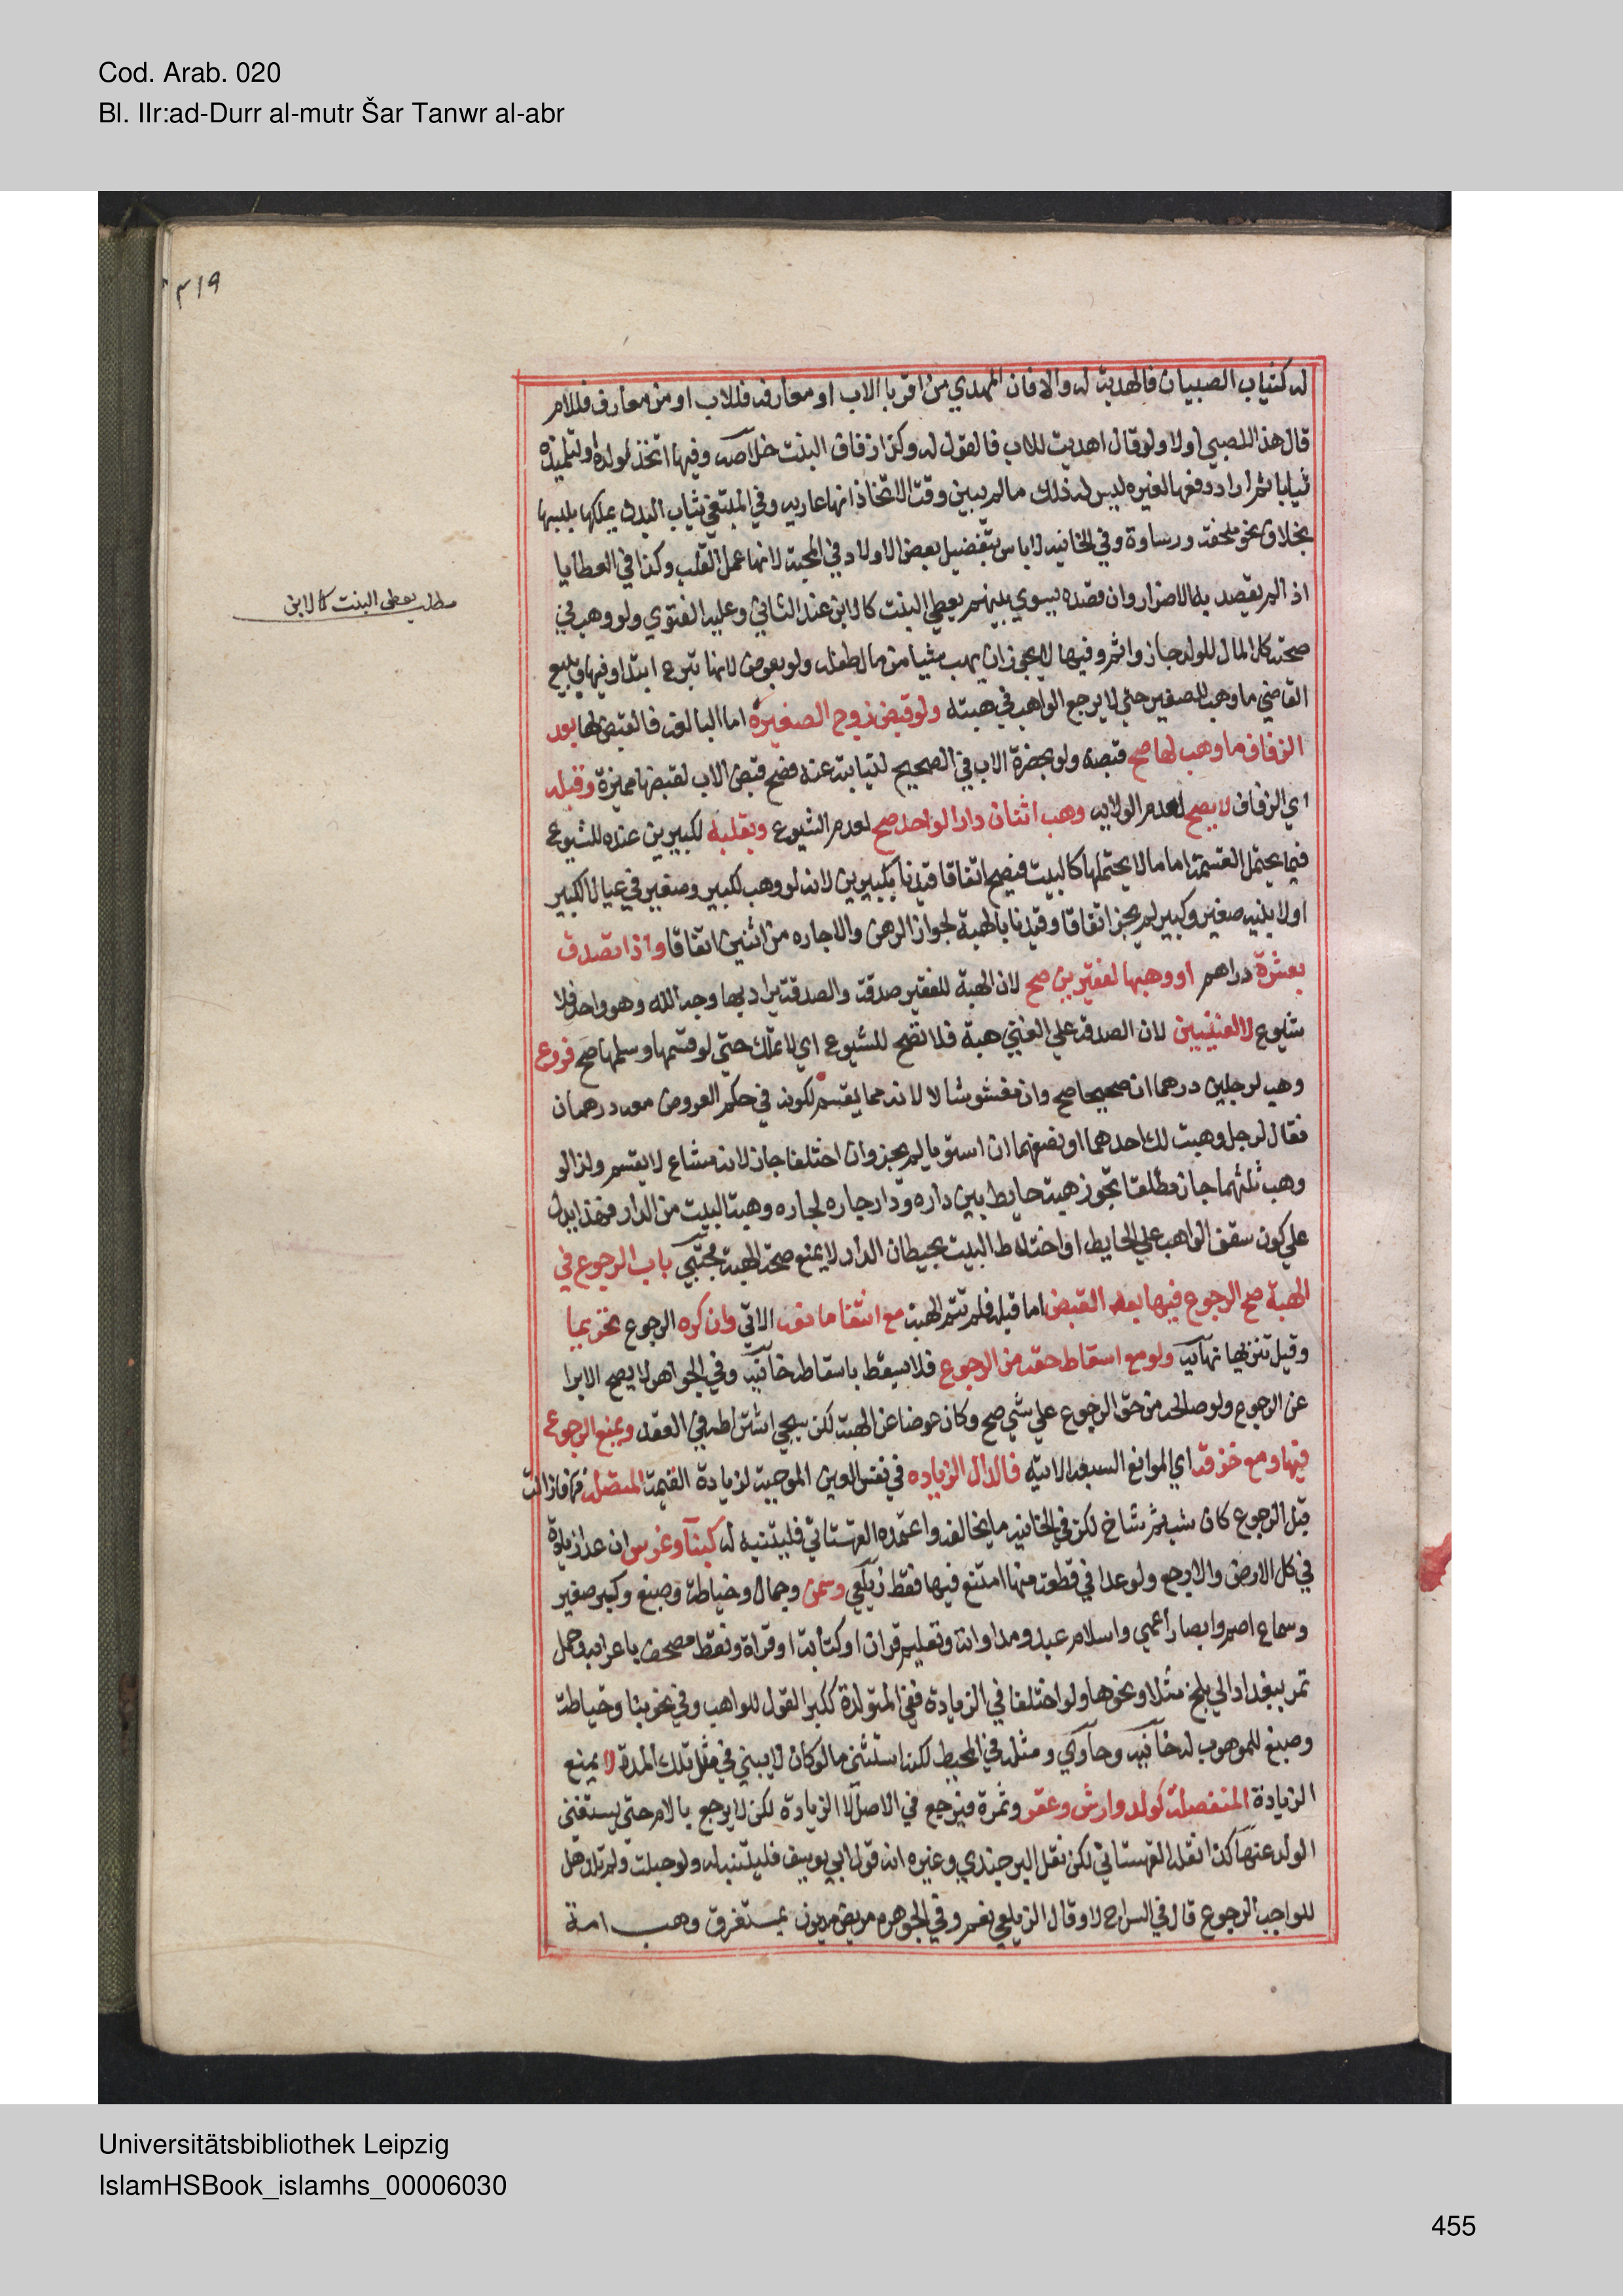 Cod. Arab. 020
Bl. IIr:ad-Durr al-mutr Šar Tanwr al-abr
٣١٩
له كثياب الصبيان فالهدية له والا فان المهدي من اقربا الاب او معارفه فللاب او من معارف فللام
قال هذا للصبي او لا ولو قال اهديت للاب فالقول له وكذا زفاف البنت خلاصه وفيها اتخذ لولده او لتلميذه
ثيابا ثم اراد دفعها لغيره ليس له ذلك مالم يبين وقت الاتخاذ انها عاريه وفي المبتغي ثياب البدن يملكها بلبسها
بخلاف نحو ملحفة ووسادة وفي الخانيه لاباس بتفضيل بعض الاولاد في المحبة لانها عمل القلب وكذا في العطايا
اذا لم يقصد به الاضرار وان قصده يسوي بينهم يعطي البنت كالابن عند الثاني وعليه الفتوي ولو وهب في
مطلب يعطى البنت كالابن
صحته كل المال للولد جاز واثم وفيها لايجوز ان يهب شيا من مال طفله ولو بعوض لانها تبرع ابتدا وفيها يبيع
القاضي ما وهب للصغير حتي لا يرجع الواهب في هبته ولو قبض زوج الصغيرة اما البالغه فالقبض لها بعد
الزفاف ما وهب لها صح قبضه ولو بحضرة الاب في الصحيح لنيابته عنه فصح قبض الاب لقبضها مميزة وقبله
اي الزفاف لا يصح لعدم الولايه وهب اثنان دارا لواحد صح لعدم الشيوع وبقلبه لكبيرين عنده للشيوع
فيما يحتمل القسمة اما ما لا يحتملها كالبيت فيصح اتفاقا قيدنا بكبيرين لانه لو وهب لكبير وصغير في عيال الكبير
او لابنيه صغير وكبير لم يجز اتفاقا وقيدنا بالهبة لجواز الرهن والاجاره من اثنين اتفاقا واذا تصدق
بعشرة دراهم او وهبها لفقيرين صح لان الهبة للفقير صدقة والصدقة يراد بها وجه الله وهو واحد فلا
شيوع لا لغنيين لان الصدقة علي الغني هبة فلا تصح للشيوع اي لا تملك حتي لو قسمها وسلمها صح فروع
وهب لرجلين درهما ان صحيحا صح وان مغشوشا لا لانه مما يقسم لكونه في حكم العروض معه درهمان
فقال لرجل وهبت لك احدهما او نصفهما ان استويا لم يجز وان اختلفا جاز لانه مشاع لا يقسم ولذا لو
وهب ثلثهما جاز مطلقا تجوز هبة حايط بين داره ودار جاره لجاره وهبة البيت من الدار فهذا يدل
علي كون سقف الواهب علي الحايط او اختلاط البيت بحيطان الدار لا يمنع صحة الهبة مجتبي باب الرجوع في
الهبة صح الرجوع فيها بعد القبض اما قبله فلم تتم الهبة مع انتفا مانعه الاتي وان كره الرجوع تحريما
وقيل تنزيها نهايه ولو مع اسقاط حقه من الرجوع فلا يسقط باسقاطه خانيه وفي الجواهر لا يصح الابرا
عن الرجوع ولو صالحه من حق الرجوع علي شي صح وكان عوضا عن الهبة لكن سيجي اشتراطه في العقد ويمنع الرجوع
فيها ومع خزقه اي الموانع السبعه الاتيه فالدال الزياده في نفس العين الموجبة لزيادة القيمة المتصلة فان زالت
قبل الرجوع كان شب ثم شاخ لكن في الخانيه ما يخالفه واعتمده القهستاني فليتنبه له كبنا وغرس ان عدا زيادة
في كل الارض والا رجع ولو عدا في قطعة منها امتنع فيها فقط زيلعي وسمن وجمال وخياطة وصبغ وكبر صغير
وسماع اصم وابصار اعمي واسلام عبد ومداواته وتعليم قران او كتابة او قراة ونقط مصحف باعرابه وحمل
تمر ببغداد الي بلخ مثلا ونحوها ولو اختلفا في الزيادة ففي المتولدة ككبر القول للواهب وفي نحو بنا وخياطة
وصبغ للموهوب له خانيه وحاوي ومثله في المحيط لكنه استثني ما لو كان لا يبني في مثل تلك المدة لا يمنع
الزيادة المنفصلة كولد وارش وعقر وثمرة فيرجع في الاصل لا الزيادة لكن لا يرجع بالام حتي يستغني
الولد عنها كذا نقله القهستاني لكن نقل البرجندي وغيره انه قول ابي يوسف فليتنبه له ولو حبلت ولم تلد هل
للواهب الرجوع قال في السراج لا وقال الزيلعي نعم وفي الجوهره مريض مديون بمستغرق وهب امة
Universitätsbibliothek Leipzig
IslamHSBook_islamhs_00006030
455